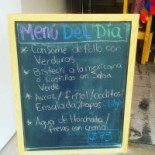 Menú Del Día
Consomé de Pollo con
Verduras
Bistech a la mexicana
o Costillas en Salsa
Verde
Arroz / frijol
Ensalada/papas
Agua de Horchata/
fresas con crema